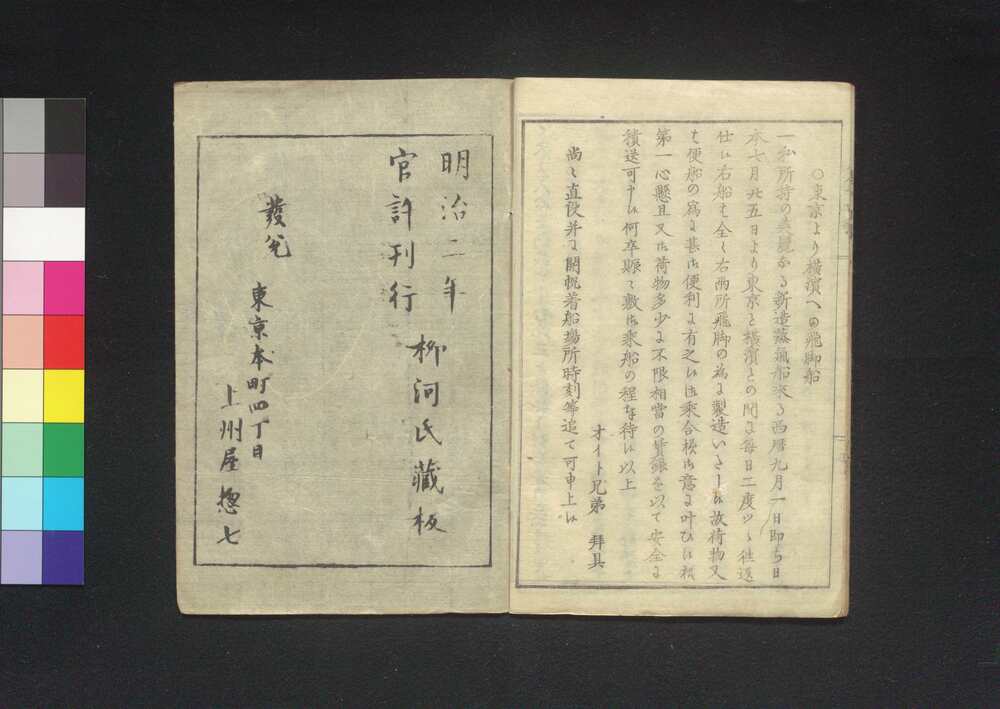 ○東京より横濱への飛脚船
一私所持の美麗なる新造蒸氣船來る西暦九月一日即ち日
本七月廿五日より東京と横濱との間に毎日二度ツヽ往返
仕い右船も全く右兩所飛脚の為に製造いたしい故荷物又
も便船の為に甚御便利に有之い間乘合様御意に叶ひい様
第一心懸且又御荷物多少に不限相當の賃錢を以て安全に
積送可申い何卒賑々敷御乘船の程奉待い以上
オイト兄弟 拜具
尚々直段并に開帆着船場所時刻等追て可申上い
明治二年
官許刊行
柳河氏藏板
發兌
東京本町四丁目
上州屋惣七